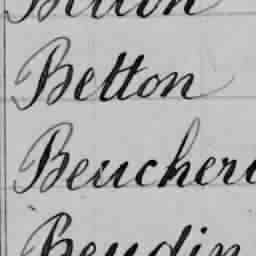 Betton
Beucher
Beudin